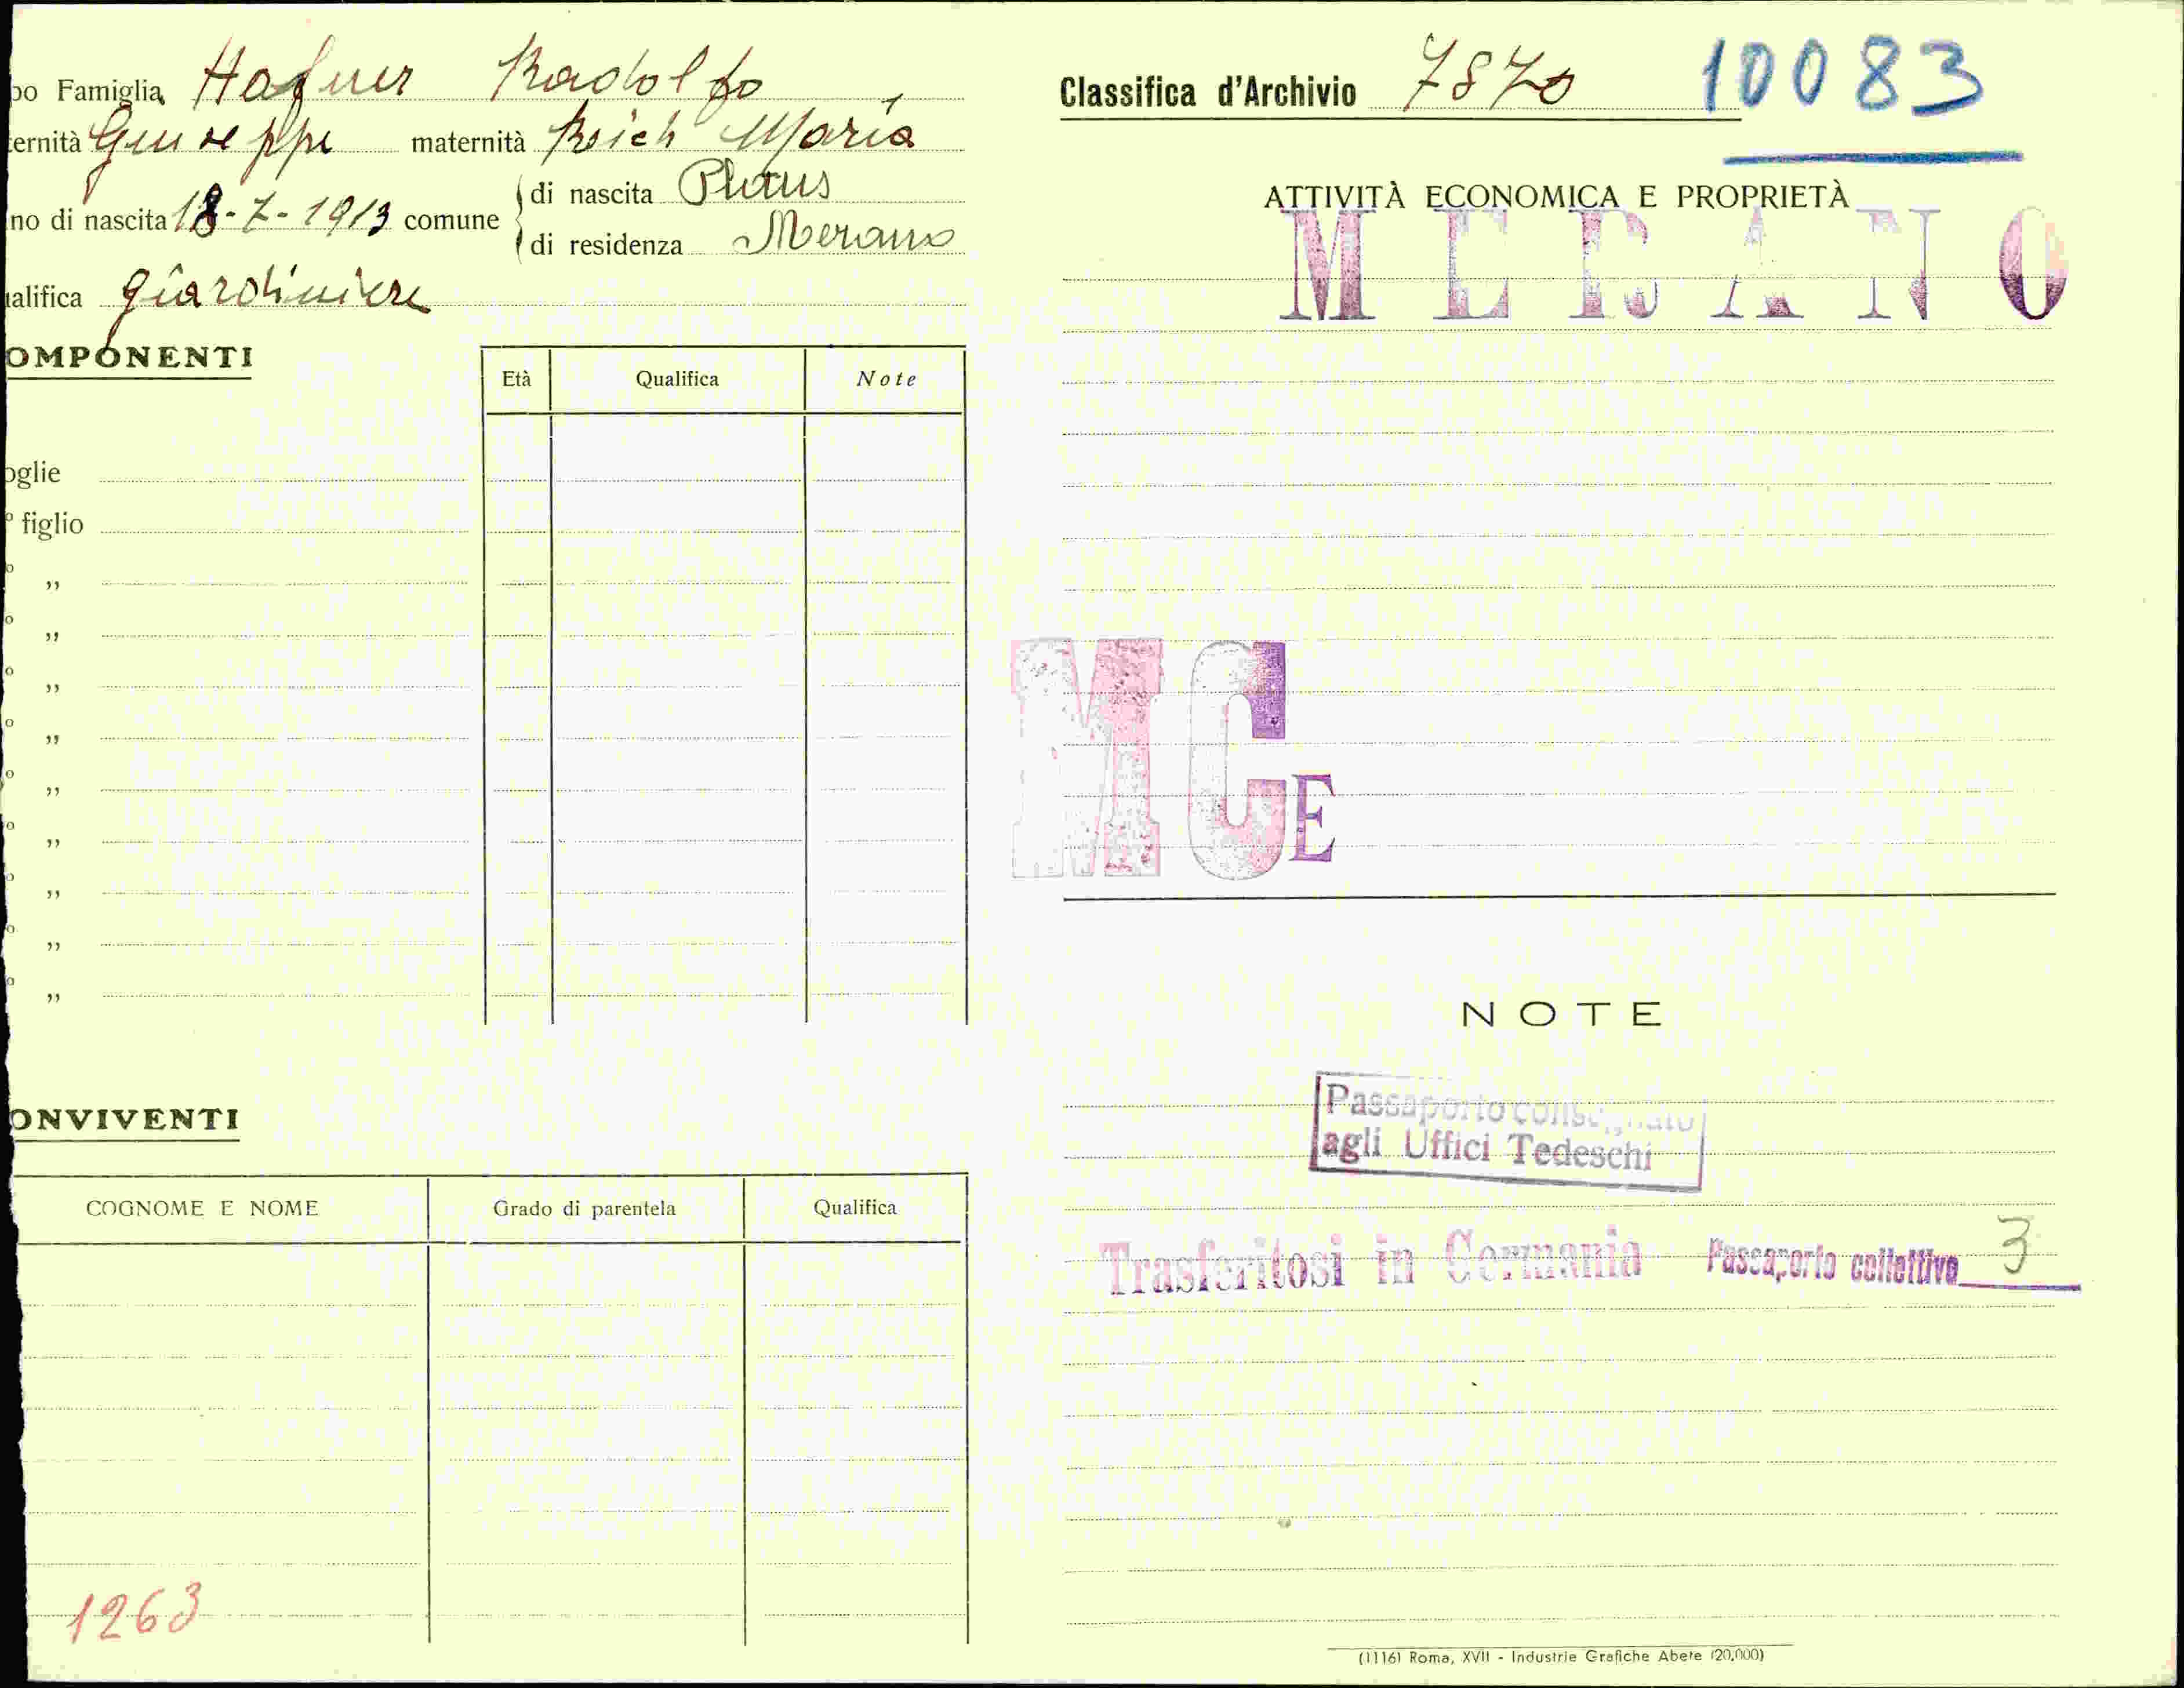 po Famiglia Hafner Rodolfo
ernità Giuseppe maternità Reich Maria
no di nascita 18-7-1913 comune di nascita Plaus
di residenza Merano
alifica giardiniere
OMPONENTI
Età Qualifica Note
oglie
° figlio
° ,,
° ,,
° ,,
° ,,
° ,,
° ,,
° ,,
° ,,
° ,,
ONVIVENTI
COGNOME E NOME Grado di parentela Qualifica
1263
Classifica d'Archivio 7870 10083
ATTIVITÀ ECONOMICA E PROPRIETÀ
MERANO
MCE
NOTE
Passaporto consegnato
agli Uffici Tedeschi
Trasferitosi in Germania Passaporto collettivo 3
(1116) Roma, XVII - Industrie Grafiche Abete (20.000)